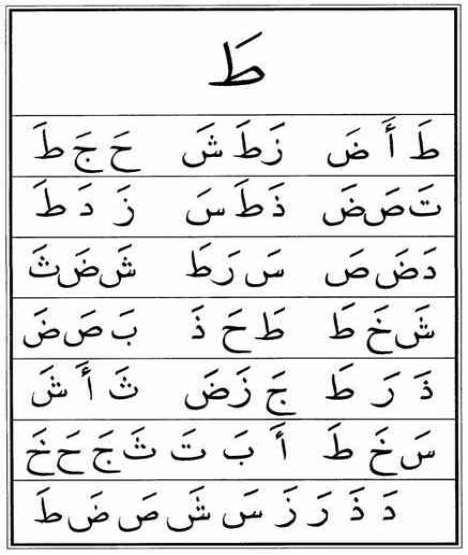 طَ
طَ أَ ضَ زَ طَ شَ حَ جَ طَ
تَ صَ ضَ ذَ طَ سَ زَ دَ طَ
دَ ضَ صَ سَ رَ طَ شَ ضَ ثَ
شَ خَ طَ طَ حَ ذَ بَ صَ ضَ
ذَ رَ طَ جَ زَ ضَ ثَ أَ شَ
سَ خَ طَ أَ بَ تَ ثَ جَ حَ خَ
دَ ذَ رَ زَ سَ شَ صَ ضَ طَ